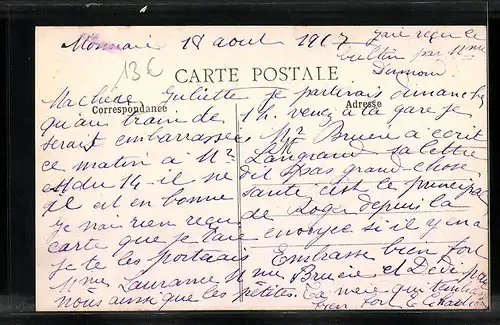 Monnaie 18 aout 1917
j'ai reçu ce
bulletin par Mme
Dumond
13€
CARTE POSTALE
Correspondance
Adresse
Ma chère Juliette je partirais dimanche
qu'au train de 1 h. venez à la gare je
serait embarrassée Mr Bruère a écrit
ce matin à Mr Langrand sa lettre
est du 14 il ne dit pas grand chose
il est en bonne santé c'est le principal
je n'ai rien reçu de Roger depuis la
carte que je t'ai envoyée si il y en a
je te les porterais Embrasse bien fort
Mme Laurance Mme Bruère et Dédé pour
nous ainsi que les petites. Ta mère qui
bien fort